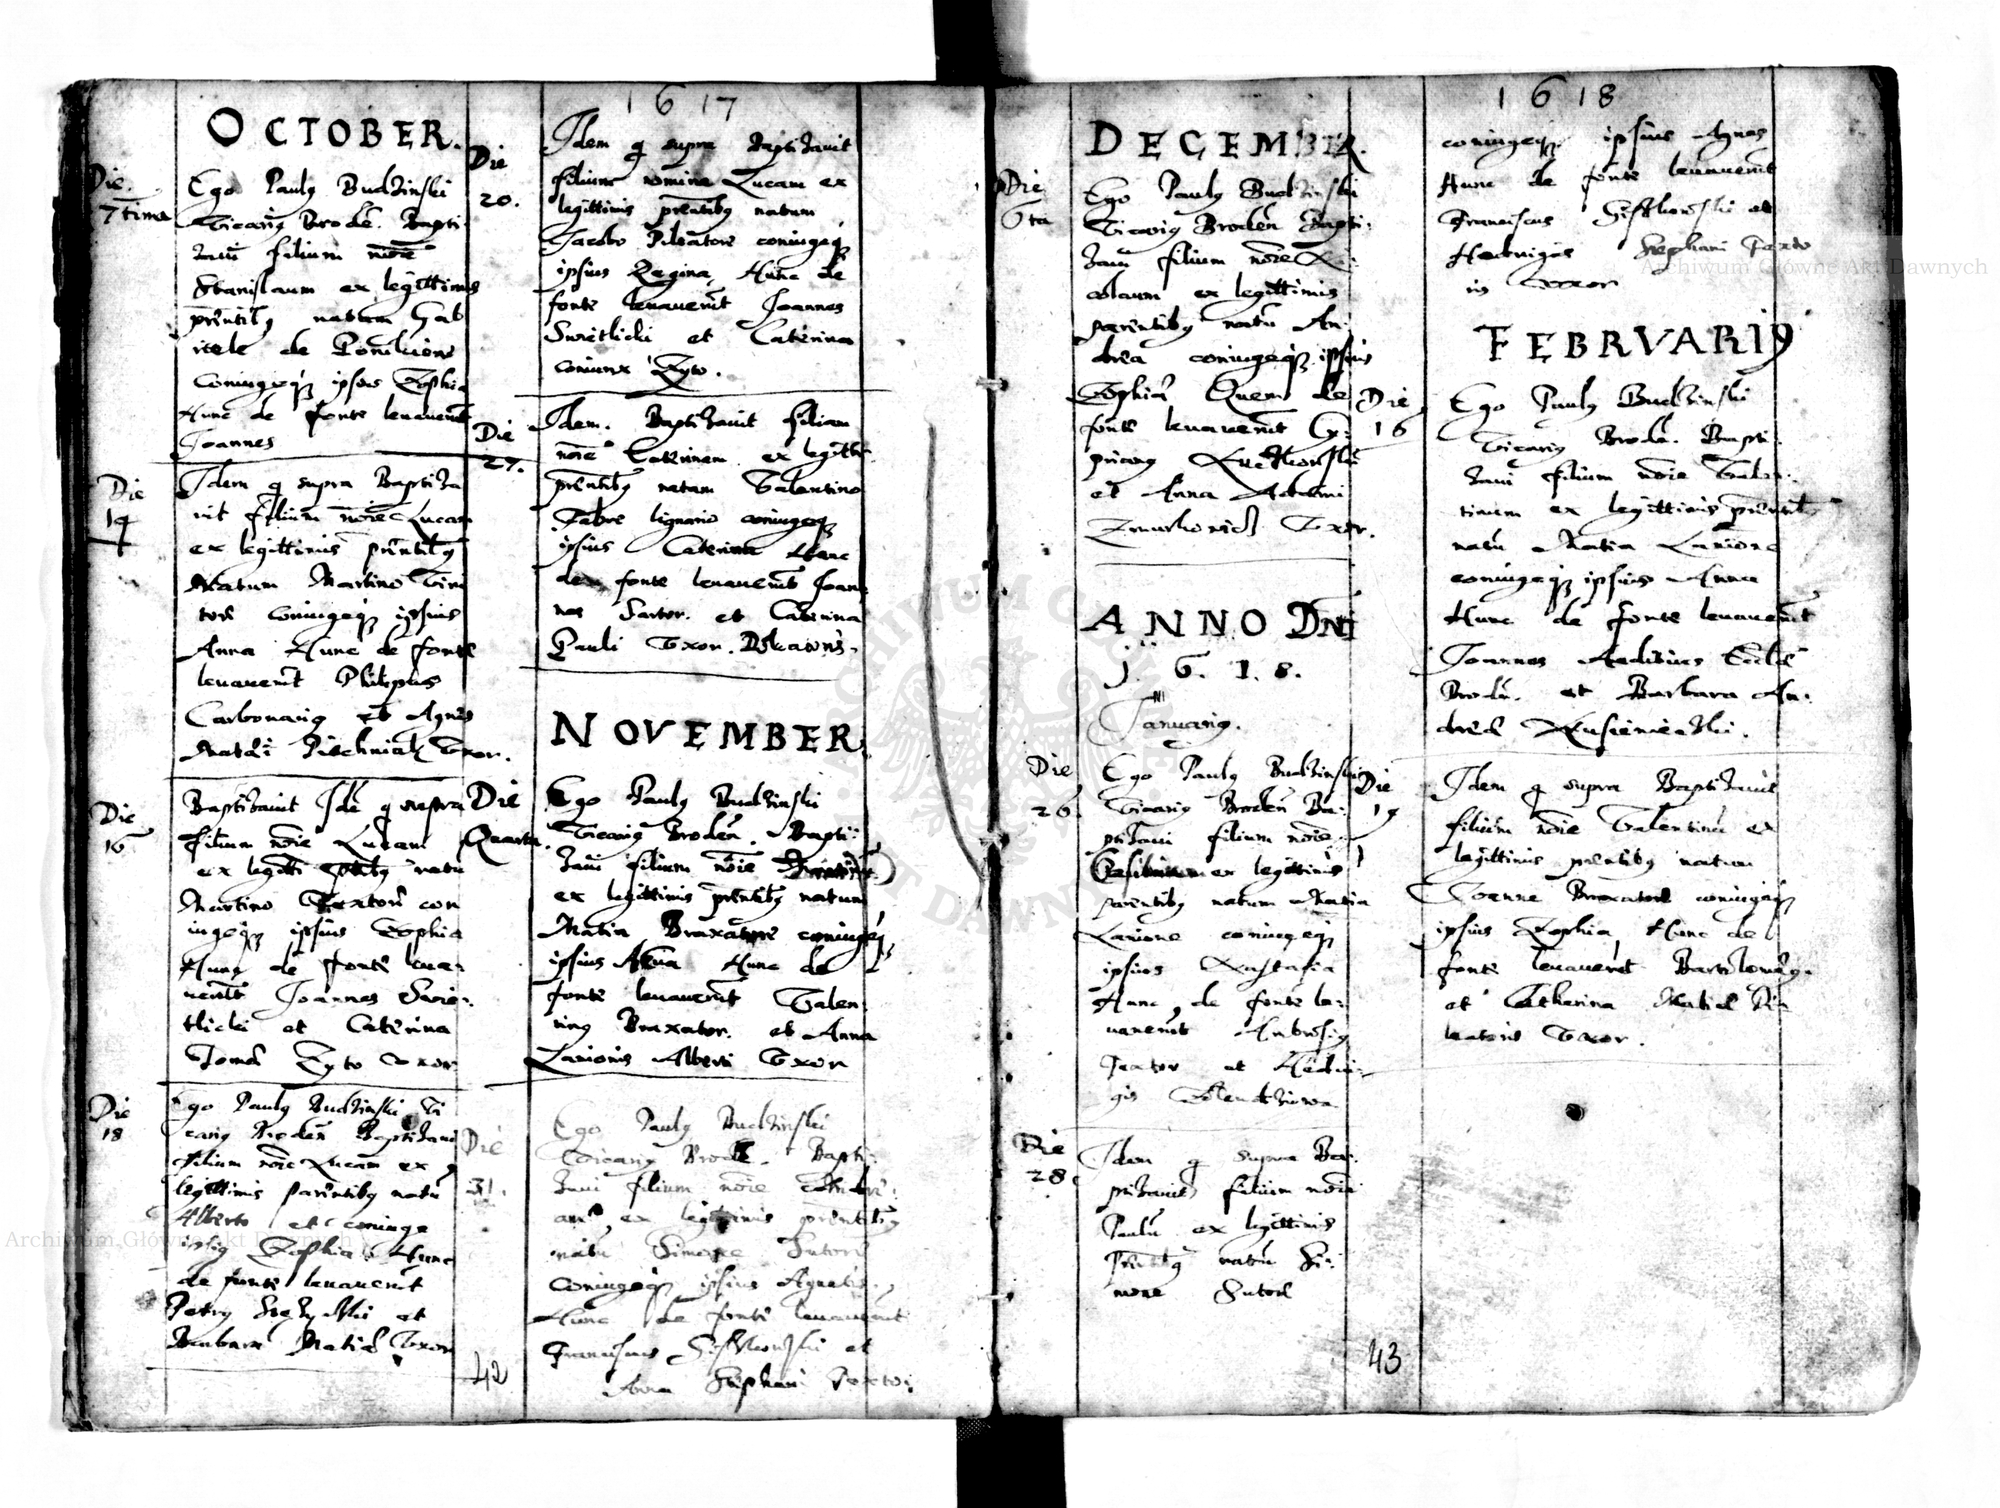 1617
OCTOBER.
Die
7tima
Ego Pauly Budzinski
Vicariy Broden̄. Bapti
zaui filium nōie
Stanislaum ex legittimis
prēntiby natum Gab
riele de
coniugeq; ipsius Zophia
Hunc de fonte leuauerūt
Joannes
Die
14
Idem q supra Baptiza
uit filium nōie Lucam
ex legittimis prēntiby
Natum Martino
tore coniugeq; ipsius
Anna Hunc de fonte
leuauerūt Philippus
Carbonariy et Agnes
Vxor.
Die
16
Baptizauit Idē q supra
filium nōie Lucam
ex legitti natū
Martino Textore con
iugeq; ipsius Zophia
Hunc de fonte leua-
uerūt Joannes Swie-
tlicki et Caterina
Zyto vxor
Die
18
Ego Pauly Budzinski Vi
cariy Broden̄ Baptizaui
filium nōie Lucam ex
legittimis parentiby natū
Alberto et coniuge
ipsiy Zophia Hunc
de fonte leuauerūt
Petry et
Barbara Matiæ Vxor
Die
20.
Idem q supra Baptizauit
filium nomine Lucam ex
legittimis prēntiby natum
Jacobo Pileatore coniugeq;
ipsius Regina, Hunc de
fonte leuauerūt Joannes
Swietlicki et Caterina
coniunx Zyto.
Die
27.
Idem. Baptizauit filiam
nōie Caterinam ex legitti-
prēntiby natam Valentino
Fabro lignario coniugeq;
ipsius Caterina Hanc
de fonte leuauerūt Joan-
nes Sartor. et Caterina
Pauli Vxor.
NOVEMBER.
Die
Quarta.
Ego Pauly Budzinski
Vicariy Broden̄. Bapti-
zaui filium nōie
ex legittimis prēntiby natum
Matia Braxatore coniugeq;
ipsius Hunc de
fonte leuauerūt Valen-
tiny Braxator. et Anna
Lanionis Alberti Vxor
Die
31.
Ego Pauly Budzinski
Vicariy Brodē. Bapti-
zaui filium nōie
ex legittimis prēntiby
natū Simone Sutore
coniugeq; ipsius Agnete,
Hunc de fonte leuauerūt
Franciscus et
Anna Stephani
42
1618
DECEMBER.
Die
6ta
Ego Pauly Budzinski
Vicariy Broden̄ Bapti-
zaui filium nōie Ni-
colaum ex legittimis
parentiby natū An-
drea coniugeq; ipsius
Zophia Quem de
fonte leuauerūt Cy-
priany
et Anna Adami
Vxor.
ANNO DNI
1.6.1.8.
Januariy.
Die
26.
Ego Pauly Budzinski
Vicariy Broden̄ Ba-
ptizaui filium nōie
ex legittimis
parentiby natum Matia
Lanione coniugeq;
ipsius
Hunc, de fonte le-
uauerūt Ambrosiy
Textor et Hedui-
gis
Die
28
Idem q supra Ba-
ptizauit filium nōie
Paulū ex legittimis
Prēntiby natū Si-
mone Sutore
43
coniugeq; ipsius Agnes
Hunc de fonte leuauerūt
Franciscus et
Heduigis Stephani Texto
ris Vxor
FEBRVARI9
Die
16
Ego Pauly Budzinski
Vicariy Brodē. Bapti-
zaui filium nōie Valen-
tinum ex legittimis prēntiby
natū Matia Lanione
coniugeq; ipsius Anna
Hunc de fonte leuauerūt
Joannes Aedituus Eccl̄æ
Brodē. et Barbara An-
dreæ
Die
19
Idem q supra Baptizauit
filium nōie Valentinū ex
legittimis prēntiby natum
Joanne Braxatore coniugeq;
ipsius Zophia, Hunc de
fonte leuauerūt Bartolomey.
et Catherina Matiæ Pi-
leatoris Vxor.